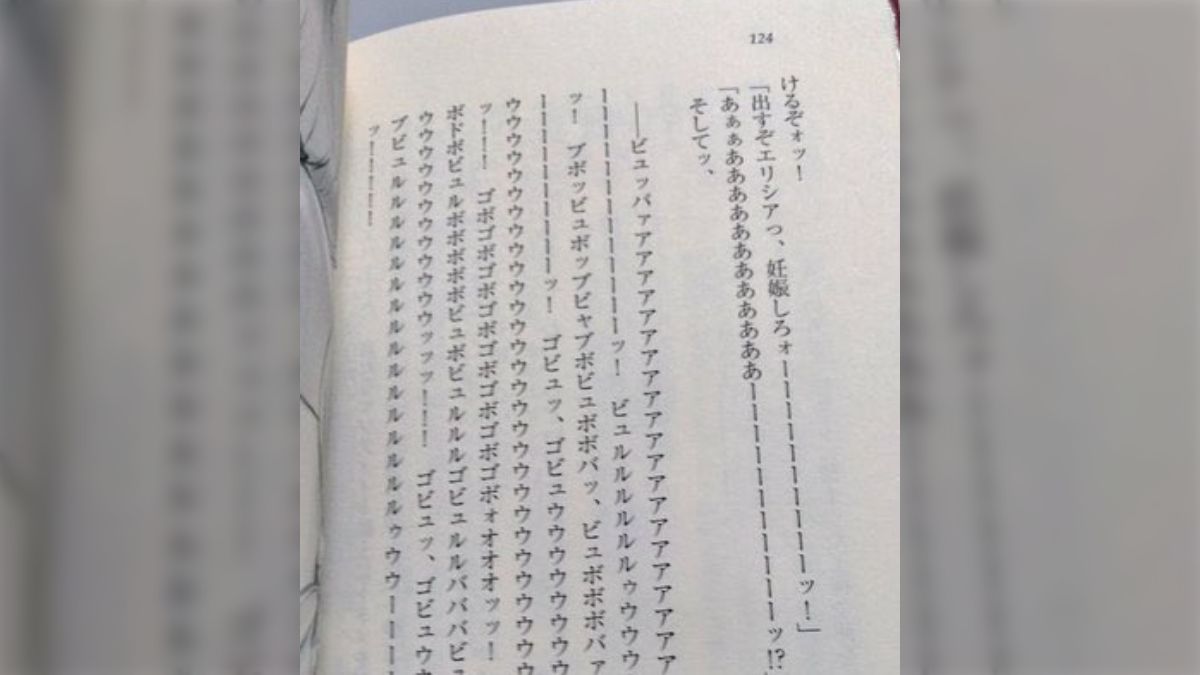 124
けるぞォッ！
「出すぞエリシアっ、妊娠しろォーーーーーーーーーーーッ！」
「あぁぁああああああああああああーーーーーーーーーーーッ!?
そしてッ、
――ビュッバァアアアアアアアアアアアアアアアアアアアア
ーーーーーーーーーーーーッ！　ビュルルルルルルゥウウウ
ッ！　ブボッビュボッブビャブボビュボボバッ、ビュボボボバァ
ーーーーーーーーーッ！　ゴビュッ、ゴビュウウウウウウウウ
ウウウウウウウウウウウウウウウウウウウウウウウウウウウウ
ッ！！！　ゴボゴボゴボゴボゴボゴボゴボゴボォオオオッッ！
ボドボビュルボボボボボビュボビュルルルゴビュルルバババビュ
ウウウウウウウウウウウッッッ！！！　ゴビュッ、ゴビュウウ
ブビュルルルルルルルルルルルルルルルルルルルゥウウーーー
ッ！ーーーー